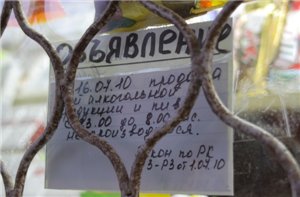 Объявление
16.07.10 прода
й алкогольной
дукции и пива
с 23.00 до 8.00
не производ ся.
кон по РС
3-РЗ от 1.07.10